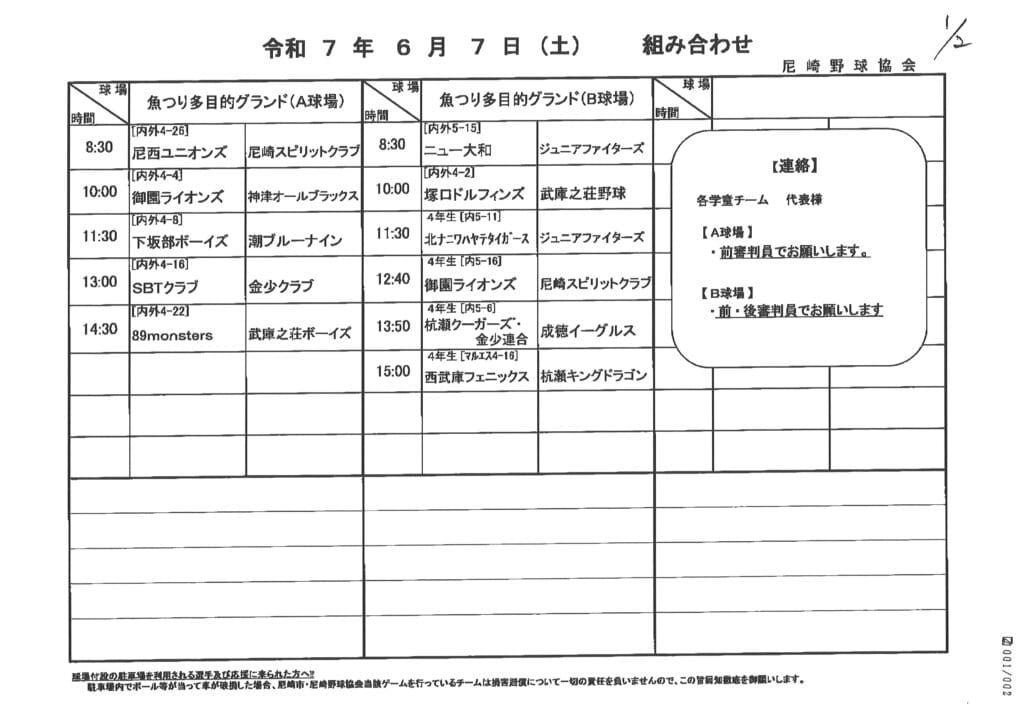 1/2
令和 7 年 6 月 7 日 (土) 組み合わせ
尼崎野球協会
球場 魚つり多目的グランド(A球場) 球場 魚つり多目的グランド(B球場) 球場
時間 時間 時間
[内外4-26] [内外5-15]
8:30 尼西ユニオンズ 尼崎スピリットクラブ 8:30 ニュー大和 ジュニアファイターズ
[内外4-4] [内外4-2]
10:00 御園ライオンズ 神津オールブラックス 10:00 塚口ドルフィンズ 武庫之荘野球
[内外4-8] 4年生 [内5-11]
11:30 下坂部ボーイズ 潮ブルーナイン 11:30 北ナニワハヤテタイガース ジュニアファイターズ
[内外4-16] 4年生 [内5-16]
13:00 SBTクラブ 金少クラブ 12:40 御園ライオンズ 尼崎スピリットクラブ
[内外4-22] 4年生 [内5-6]
14:30 89monsters 武庫之荘ボーイズ 13:50 杭瀬クーガーズ・ 成徳イーグルス
金少連合
4年生 [マルエス4-16]
15:00 西武庫フェニックス 杭瀬キングドラゴン
【連絡】
各学童チーム 代表様
【A球場】
・前審判員でお願いします。
【B球場】
・前・後審判員でお願いします
球場付設の駐車場を利用される選手及び応援に来られた方へ!!
駐車場内でボール等が当って車が破損した場合、尼崎市・尼崎野球協会当該ゲームを行っているチームは損害賠償について一切の責任を負いませんので、この旨周知徹底を御願いします。
001/002